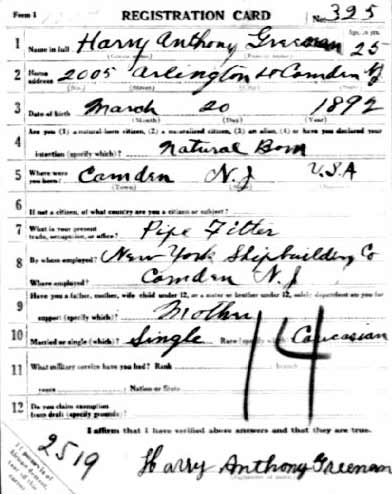 Form 1 REGISTRATION CARD No. 395
1 Name in full Harry Anthony Greenan 25
Age, in yrs.
2 Home address 2005 Arlington St Camden NJ
3 Date of birth March 20 1892
(Month) (Day) (Year)
Are you (1) a natural-born citizen, (2) a naturalized citizen, (3) an alien, (4) or have you declared your
4 intention (specify which)? Natural Born
5 Where were you born? Camden N.J U.S.A
(Town) (State)
6 If not a citizen, of what country are you a citizen or subject?
7 What is your present trade, occupation, or office? Pipe Fitter
8 By whom employed? New York Shipbuilding Co
Where employed? Camden N.J
Have you a father, mother, wife, child under 12, or a sister or brother under 12, solely dependent on you for
9 support (specify which)? Mother
10 Married or single (which)? Single Race (specify which)? Caucasian
11 What military service have you had? Rank branch
years Nation or State
12 Do you claim exemption from draft (specify grounds)?
14
I affirm that I have verified above answers and that they are true.
2519
Harry Anthony Greenan